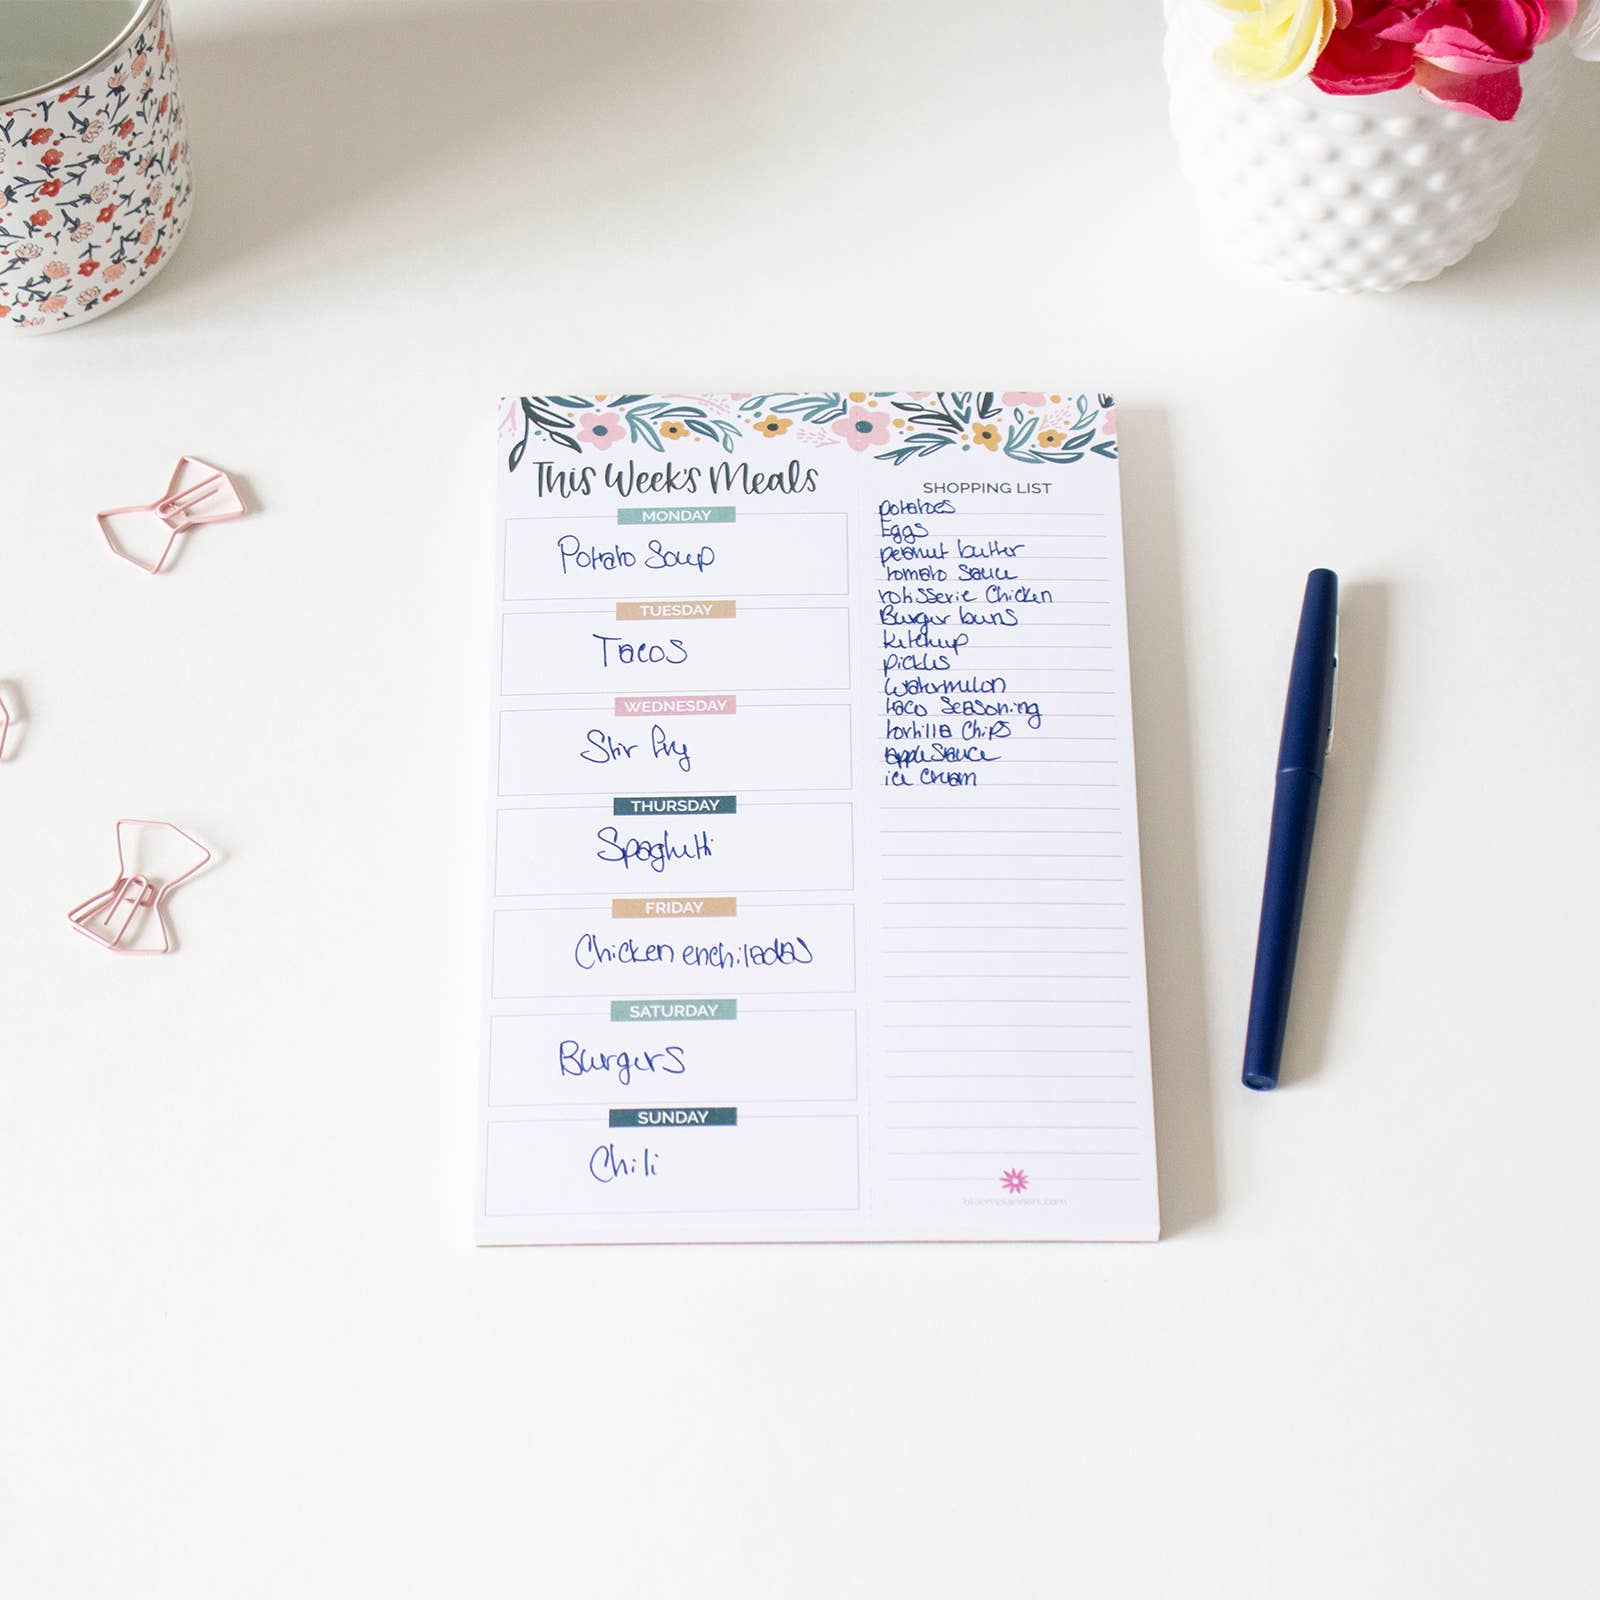 This Week's Meals
MONDAY
Potato Soup
TUESDAY
Tacos
WEDNESDAY
Stir fry
THURSDAY
Spaghetti
FRIDAY
Chicken enchiladas
SATURDAY
Burgers
SUNDAY
Chili
SHOPPING LIST
potatoes
Eggs
peanut butter
tomato sauce
rotisserie chicken
Burger buns
ketchup
pickles
watermelon
taco seasoning
tortilla chips
applesauce
ice cream
bloomplanners.com